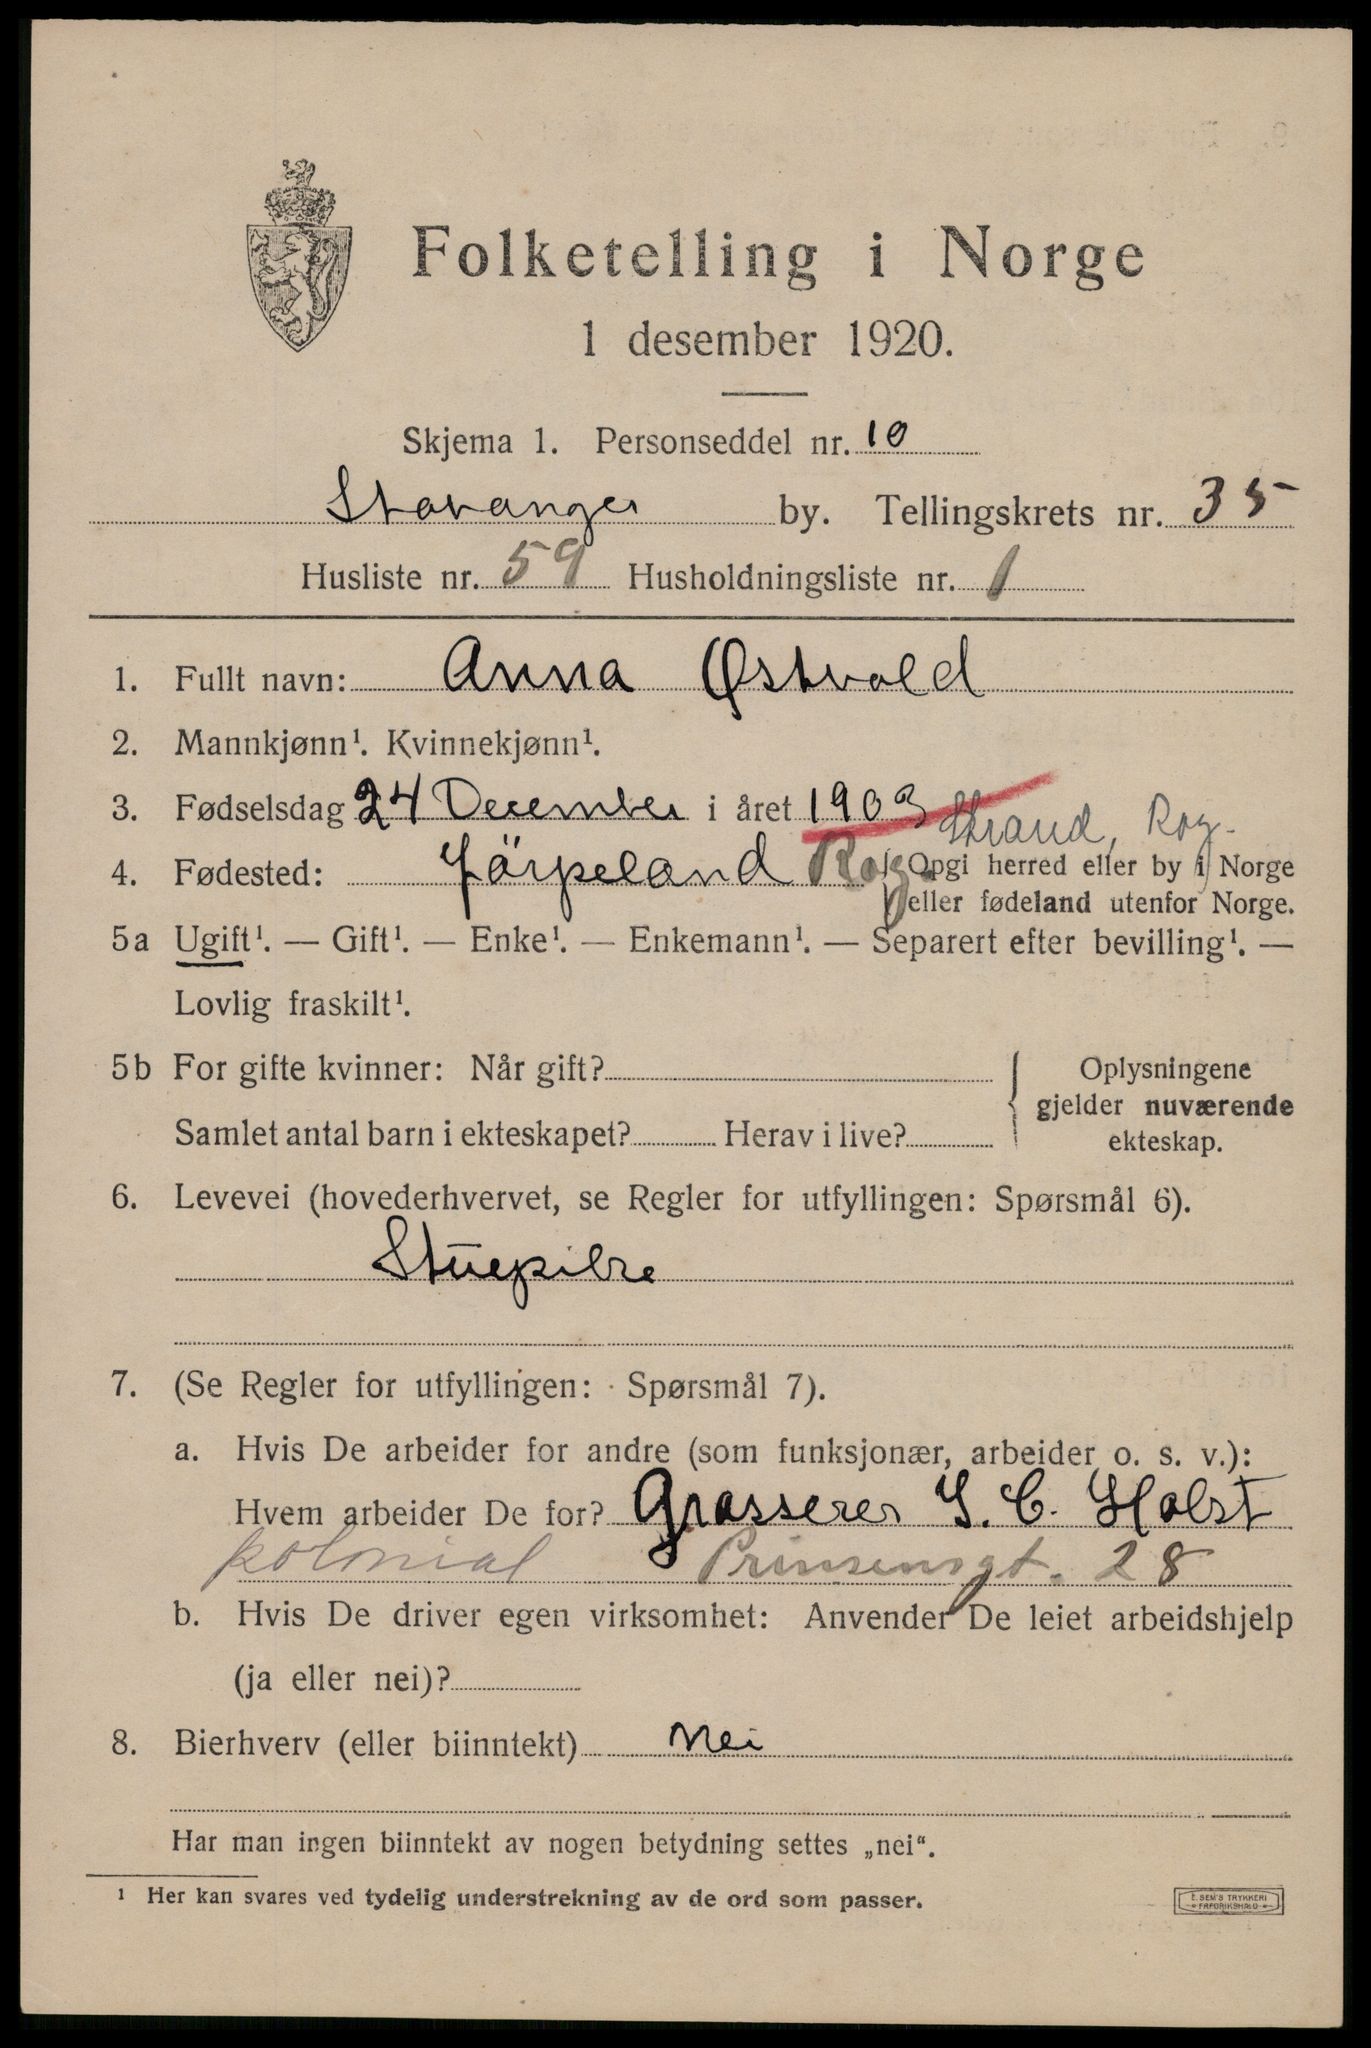 Folketelling i Norge
1 desember 1920.
Skjema 1. Personseddel nr. 10
Stavanger by. Tellingskrets nr. 35
Husliste nr. 59 Husholdningsliste nr. 1
1. Fullt navn: Anna Østvold
2. Mannkjønn¹. Kvinnekjønn¹.
3. Fødselsdag 24 December i året 1903
Strand, Rog.
4. Fødested: Jörpeland Rog. Opgi herred eller by i Norge
eller fødeland utenfor Norge.
5a Ugift¹. — Gift¹. — Enke¹. — Enkemann¹. — Separert efter bevilling¹. —
Lovlig fraskilt¹.
5b For gifte kvinner: Når gift?
Samlet antal barn i ekteskapet? Herav i live?
Oplysningene
gjelder nuværende
ekteskap.
6. Levevei (hovederhvervet, se Regler for utfyllingen: Spørsmål 6).
Stuepike
7. (Se Regler for utfyllingen: Spørsmål 7).
a. Hvis De arbeider for andre (som funksjonær, arbeider o. s. v.):
Hvem arbeider De for? Grosserer I. C. Holst
kolonial Prinsensgt. 28
b. Hvis De driver egen virksomhet: Anvender De leiet arbeidshjelp
(ja eller nei)?
8. Bierhverv (eller biinntekt) Nei
Har man ingen biinntekt av nogen betydning settes „nei“.
¹ Her kan svares ved tydelig understrekning av de ord som passer.
E. SEM'S TRYKKERI
FREDRIKSHALD